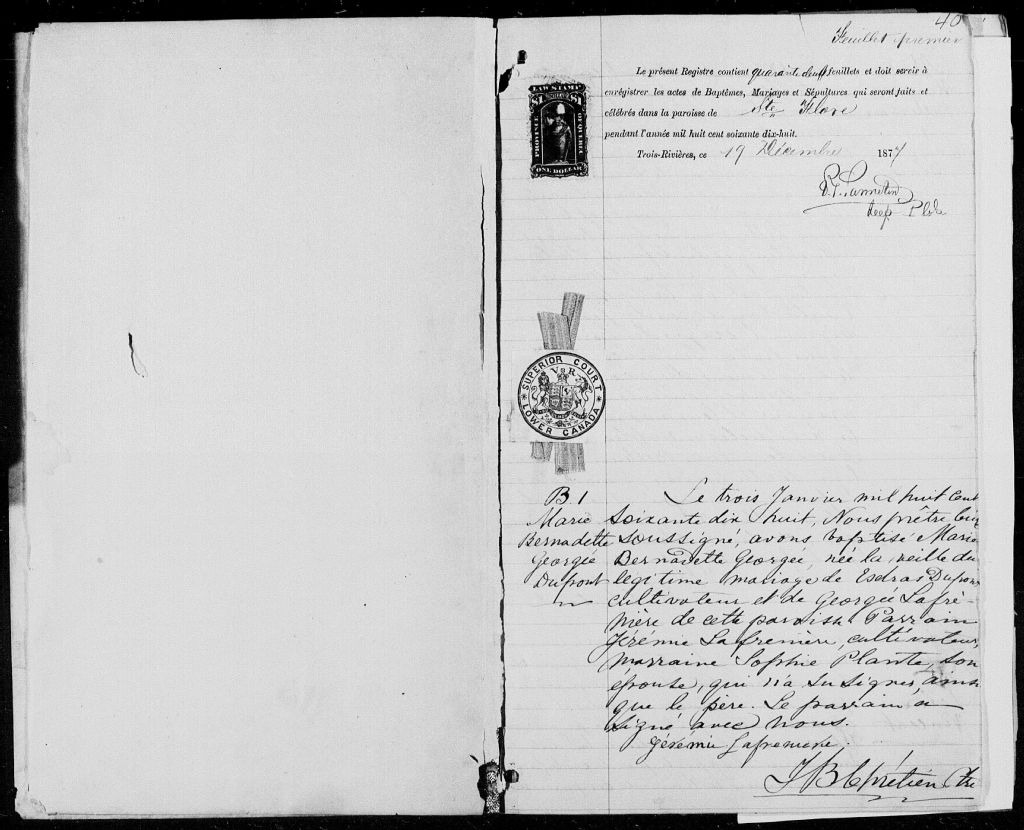 40
Feuillet premier
Le présent Registre contient quarante deux feuillets et doit servir à
enrégistrer les actes de Baptêmes, Mariages et Sépultures qui seront faits et
célébrés dans la paroisse de Ste Flore
pendant l'année mil huit cent soixante dix-huit.
Trois-Rivières, ce 19 Décembre 1877
LAW STAMP
$1 $1
PROVINCE OF QUEBEC
ONE DOLLAR
Dep. P.
SUPERIOR COURT
V R
LOWER CANADA
B. 1
Marie
Bernadette
Georgée
Dupont
Le trois Janvier mil huit cent
soixante dix huit, Nous prêtre
soussigné, avons baptisé Marie
Bernadette Georgée, née la veille du
légitime mariage de Esdras Dupont
cultivateur et de Georgée Lafre-
nière de cette paroisse. Parrain
Jérémie Lafrenière, cultivateur,
marraine Sophie Plante, son
épouse, qui n'a su signer, ainsi
que le père. Le parrain a
signé avec nous.
Jérémie Lafreniere.
J B Chrétien Ptre